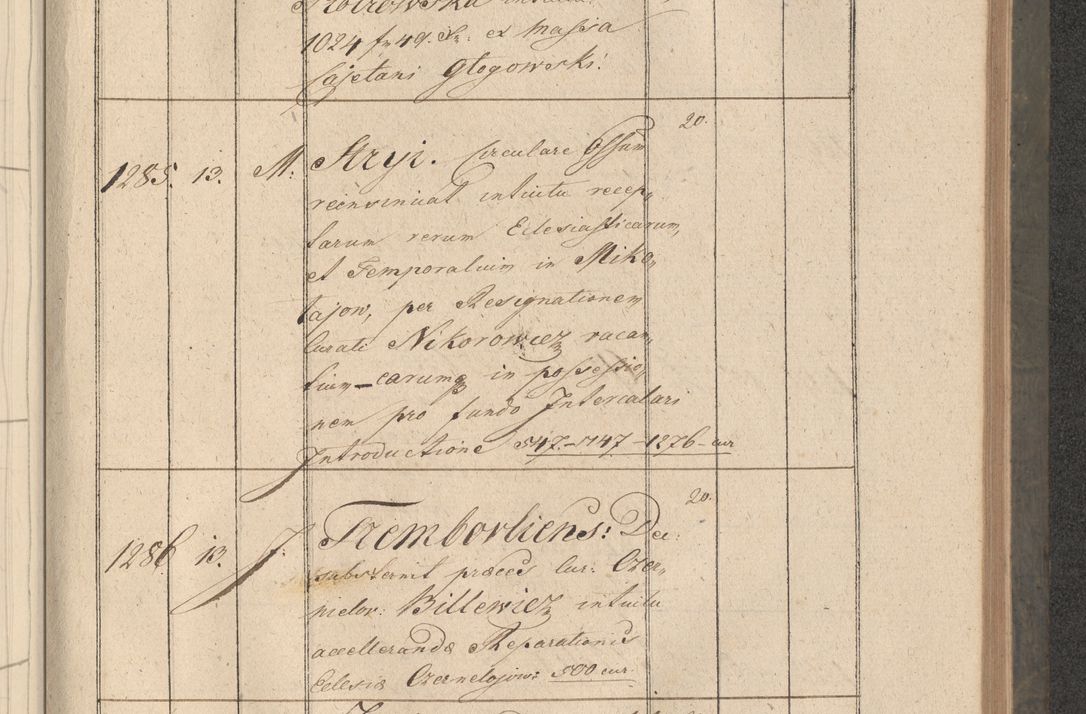 1024 fr 49. Xr: ex Massa
Cajetani Głogowski!
20.
1285. 13. M: Stryi. Circulare Offum
reinsinuat intuitu recep„
tarum rerum Eclesiasticarum,
et Temporalium in Miko„
łajow, per Resignationem
Curati Nikorowicz vacan„
tium — earumq in possessio„
nem pro fundo Intercalari
Introductione 547.–747–1276– cur
20.
1286 13. J: Tremborliens: Dec:
substernit preces Cur: Czer„
nielov: Billewicz intuitu
accelleranda Reparationis
Eclesia Czernelojow: 500 cur.